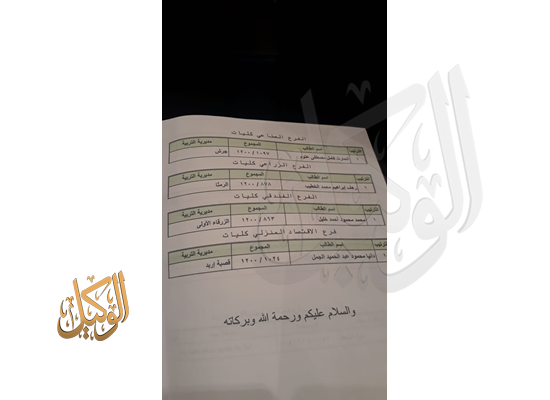 الفرع الصناعي كليات
الترتيب اسم الطالب المجموع مديرية التربية
١ كامل مصطفى عتوم ١٢٠٠/١٠٩٧ جرش
الفرع الزراعي كليات
الترتيب اسم الطالب المجموع مديرية التربية
١ رهف ابراهيم محمد الخطيب ١٢٠٠/٨٧٨ الرمثا
الفرع الفندقي كليات
الترتيب اسم الطالب المجموع مديرية التربية
١ محمد محمود احمد خليل ١٢٠٠/٨٦٣ الزرقاء الأولى
فرع الاقتصاد المنزلي كليات
الترتيب اسم الطالب المجموع مديرية التربية
١ دانيا محمود عبد الحميد الجمل ١٢٠٠/١٠٢٤ قصبة اربد
والسلام عليكم ورحمة الله وبركاته
الوكيل
الوكيل